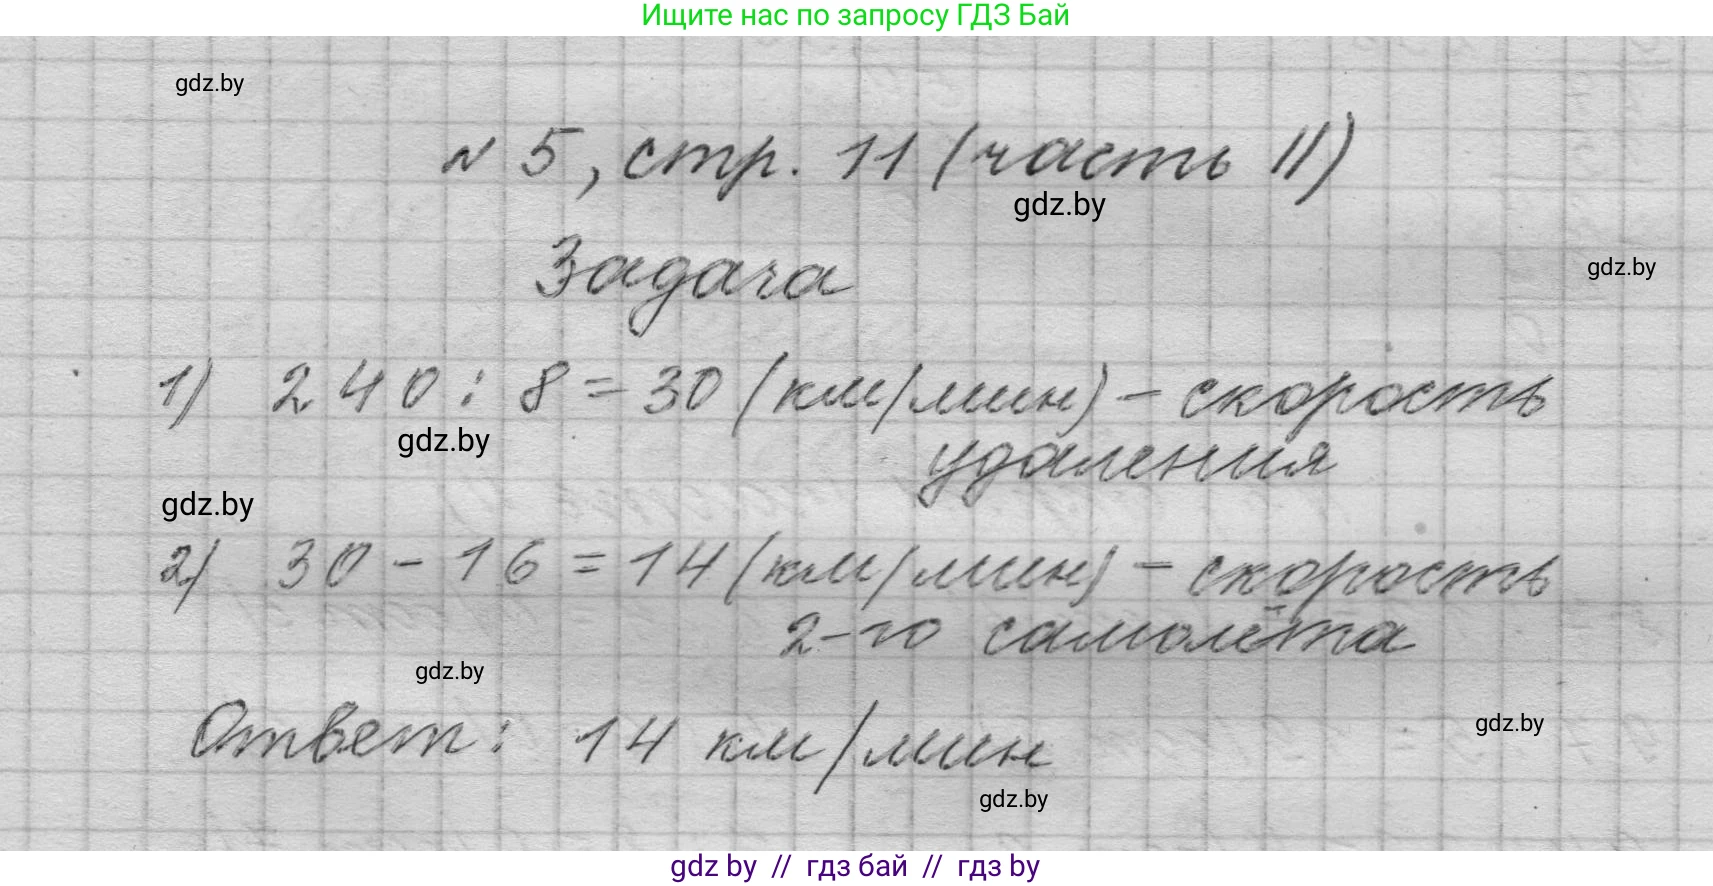 Ищите нас по запросу ГДЗ Бай
gdz.by
№ 5, стр. 11 (часть II)
gdz.by
Задача
gdz.by
1) 240 : 8 = 30 (км/мин) - скорость
удаления
gdz.by
gdz.by
2) 30 - 16 = 14 (км/мин) - скорость
2-го самолёта
gdz.by
Ответ: 14 км/мин
gdz.by
gdz.by
gdz by // гдз бай // гдз by